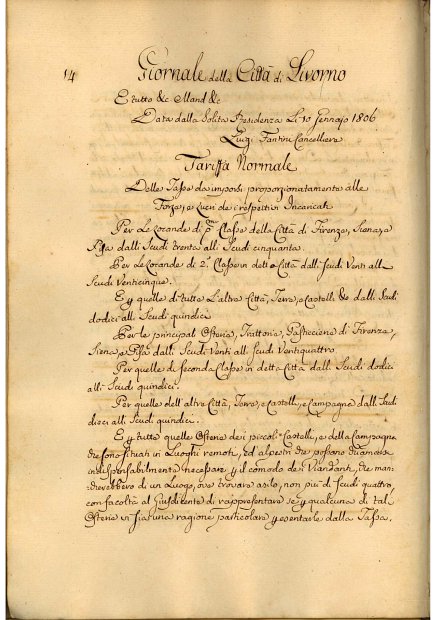 14
Giornale della Città di Livorno
E tutto &c Mand &c
Data dalla Solita Residenza Li 10 Gennajo 1806
Luigi Fantini Cancelliere
Tariffa Normale
Delle Tasse da imporsi proporzionatamente alle
Forze, e Lucri de i respettivi Incaricati
Per Le Locande di p.ma Classe della Città di Firenze, Siena, e
Pisa dalli Scudi trenta alli Scudi cinquanta.
Per Le Locande di 2.a Classe in dette Città dalli Scudi Venti alli
Scudi Venticinque.
E p quelle di tutte L'altre Città, Terre, e Castelli &c dalli Scudi
dodici alli Scudi quindici
Per le principali Osterie, Trattorie, Pasticcierie di Firenze,
Siena, e Pisa dalli Scudi Venti alli Scudi Ventiquattro
Per quelle di seconda Classe in dette Città dalli Scudi dodici
alli Scudi quindici
Per quelle dell'altre Città, Terre, e Castelli, e Campagne dalli Scudi
dieci alli Scudi quindici.
E p tutte quelle Osterie dei piccoli Castelli, e della Campagna
che sono situati in Luoghi remoti, ed alpestri che possano
indispensabilmente necessarie p il comodo de Viandanti, che man:
:cherebbero di un Luogo, ove trovare asilo, non più di Scudi quattro,
con facoltà al Giusdicente di rappresentare se p qualcuna di tali
Osterie vi sia una ragione particolare p esentarle dalla Tassa.